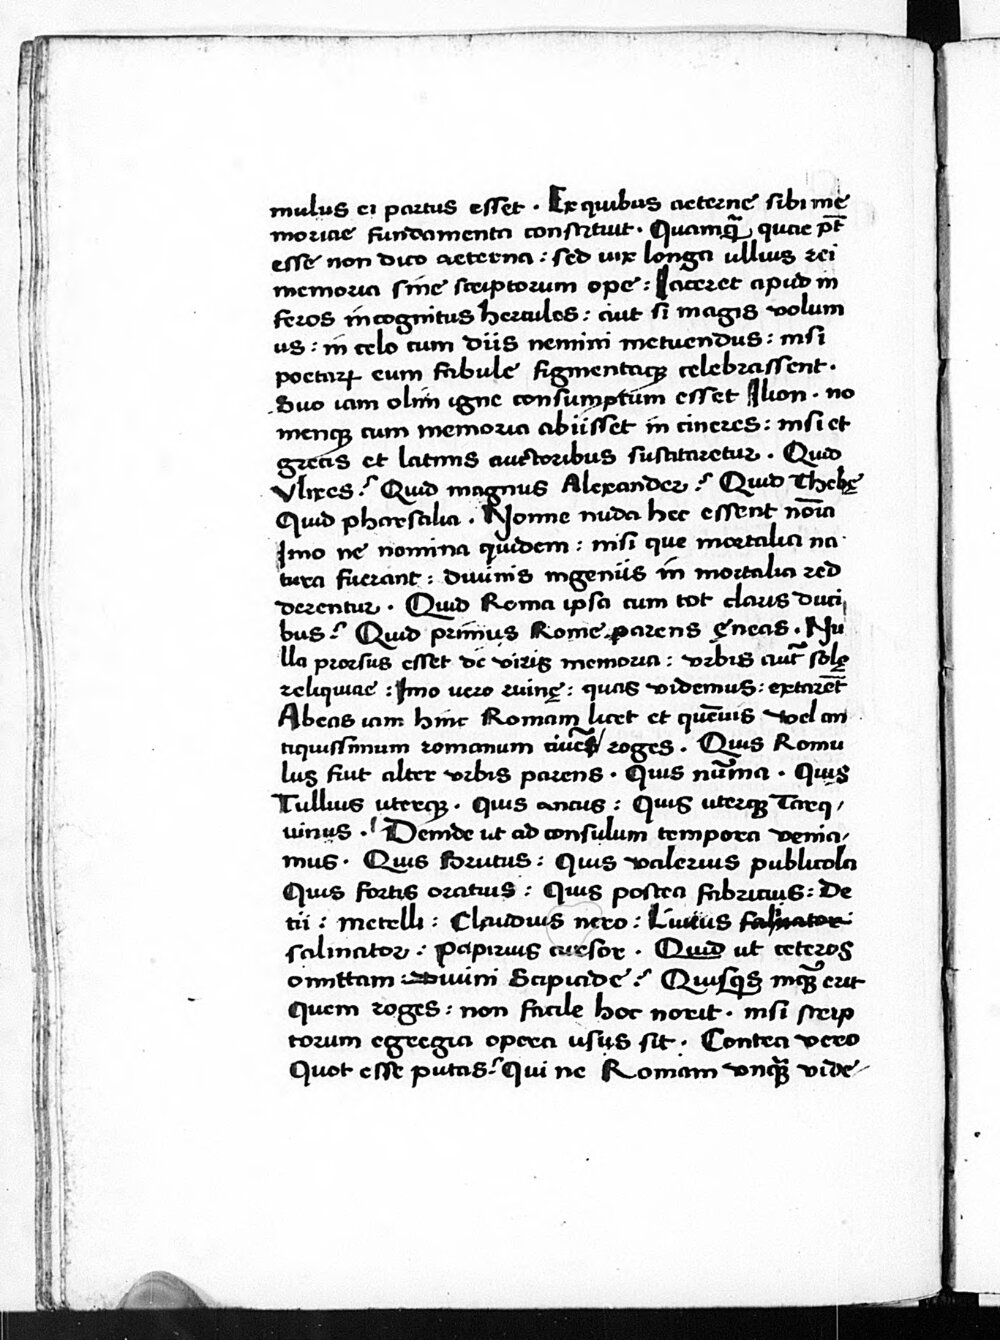 mulus ei partus esset . Ex quibus aeterne sibi me
moriae fundamenta constituit . Quamq̃ quae pt̄
esse non dico aeterna : sed vix longa ullius rei
memoria sine scriptorum ope : Iaceret apud in
feros incognitus hercules : aut si magis volum
us : in celo cum diis nemini metuendus : nisi
poetaꝝ eum fabule figmentaqꝫ celebrassent .
Duo iam olim igne consumptum esset Ilion . no
menqꝫ cum memoria abiisset in cineres : nisi et
grecis et latinis auctoribus suscitaretur . Quid
Vlixes ? Quid magnus Alexander ? Quid Thebę
Quid pharsalia . Nonne nuda hec essent no͞ia
Imo ne nomina quidem : nisi que mortalia na
tura fuerant : divinis ingeniis in mortalia red
derentur . Quid Roma ipsa cum tot claris duci
bus ? Quid primus Rome parens ęneas . Nu
lla prorsus esset de viris memoria : vrbis aut̃ solę
reliquiae : Imo vero ruinę : quas videmus : extarēt
Abeas iam hinc Romam licet et quēvis vel an
tiquissimum romanum civē roges . Quis Romu
lus fiut alter vrbis parens . Quis nūma . Quis
Tullius uterqꝫ . Quis ancus : Quis uterqꝫ Tarq/
uinus . Deinde ut ad consulum tempora venia/
mus . Quis Brutus : Quis valerius publicola
Quis fortis oratius : Quis postea fabritius : De
tii : metelli : Claudius nero : Livius salinator
salinator : Papirius cursor . Quid ut ceteros
omittam divini Scipiade ? Quisqꝫ inq̃ꝫ erit
quem roges : non facile hoc norit . nisi scrip
torum egregia opera usus sit . Contra vero
Quot esse putas ? Qui ne Romam vnq̃ꝫ vide/